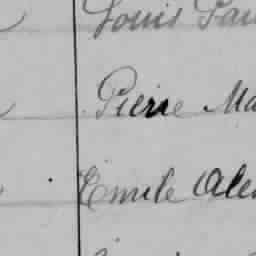 Louis
Pierre Ma
Emile Ale